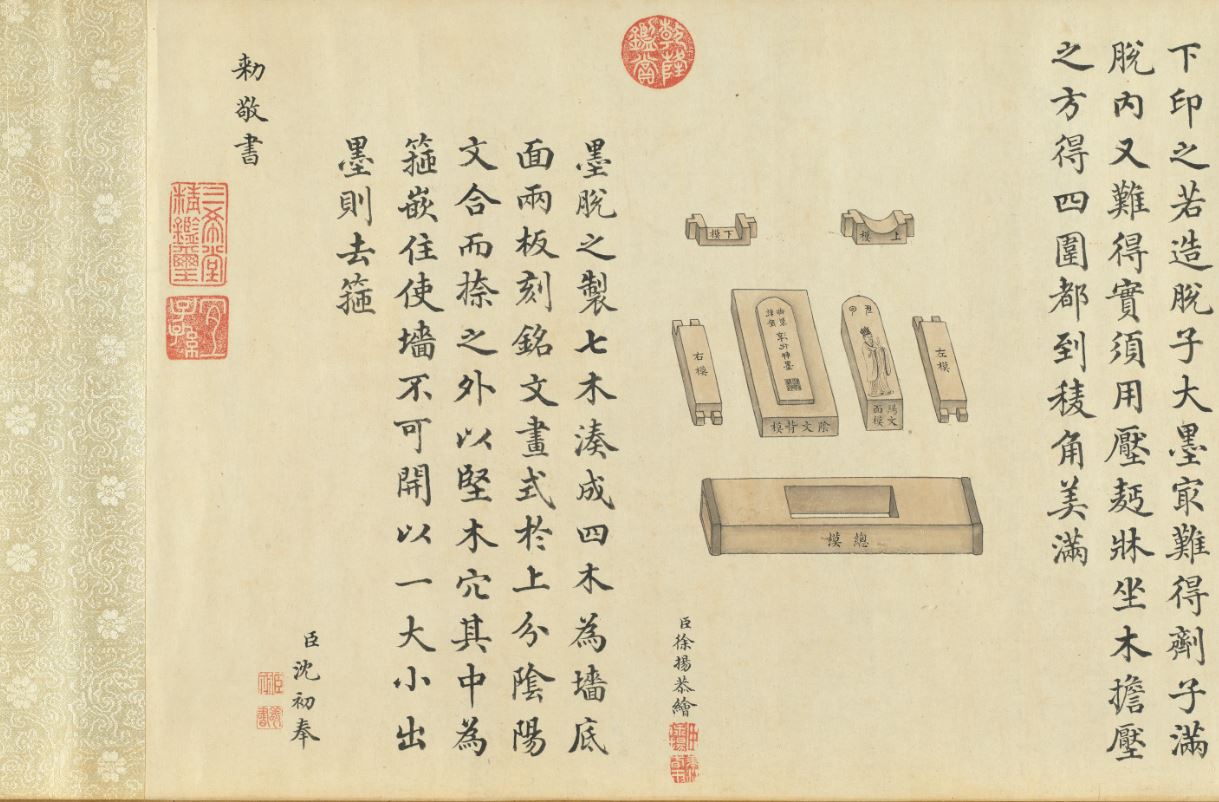 下印之若造脫子大墨㝡難得劑子滿
脫内又難得實須用壓麫牀坐木擔壓
之方得四圍都到稜角美滿
上模
下模
左模
陽文面模
陰文背模
右模
總模
臣徐揚恭繪
乾隆鑑賞
墨脫之製七木湊成四木為墻底
面兩板刻銘文畫式於上分陰陽
文合而捺之外以堅木穴其中為
箍嵌住使墻不可開以一大小出
墨則去箍
臣沈初奉
勅敬書
三希堂精鑑璽
宜子孫